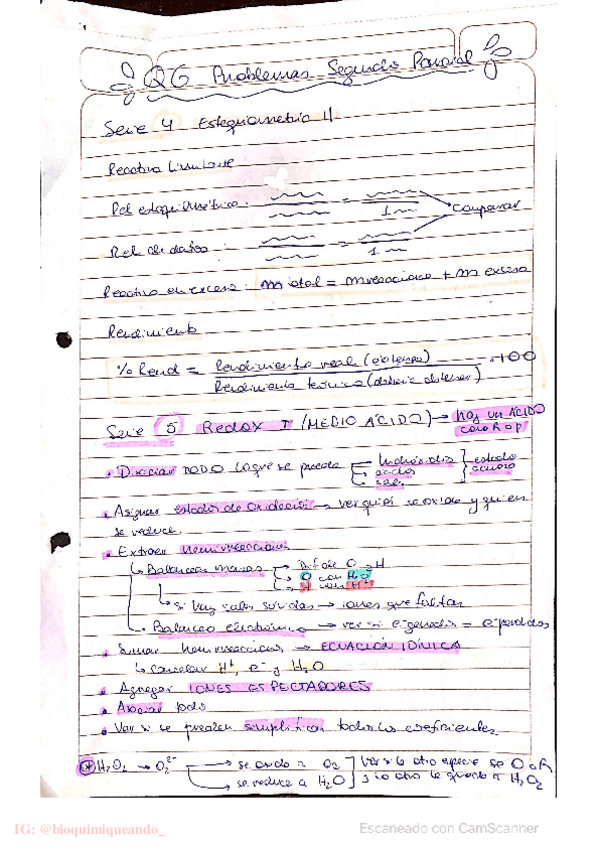 QG Problemas Segundo Parcial
Serie 4 Estequiometria II
Reactivo limitante
Rel estequiométrica:
1
Comparar
Rel de datos:
1
Reactivo en exceso: m total = m reacciona + m exceso
Rendimiento
% Rend = Rendimiento real (obtengo) . 100
Rendimiento teórico (debería obtener)
Serie 5 Redox I (MEDIO ÁCIDO) → hay un ÁCIDO como R o P
• Disociar TODO lo que se pueda → hidróxidos
→ ácidos
→ sales
estado acuoso
• Asignar estados de oxidación → ver quién se oxida y quién
se reduce.
• Extraer hemirreacciones
↳ Balanceo masas → Dif de O y H
→ O con H₂O
→ H con H⁺
↳ si hay sales sólidas → iones que faltan
↳ Balanceo electrónico → ver si e⁻ ganados = e⁻ perdidos
• Sumar hemirreacciones → ECUACIÓN IÓNICA
↳ cancelar H⁺, e⁻ y H₂O
• Agregar IONES ESPECTADORES
• Asociar todo
• Ver si se pueden simplificar todos los coeficientes
* H₂O₂ → O₂²⁻ → se oxida a O₂
→ se reduce a H₂O
Ver si la otra especie se O o R
IG: @bioquimiqueando_
Escaneado con CamScanner